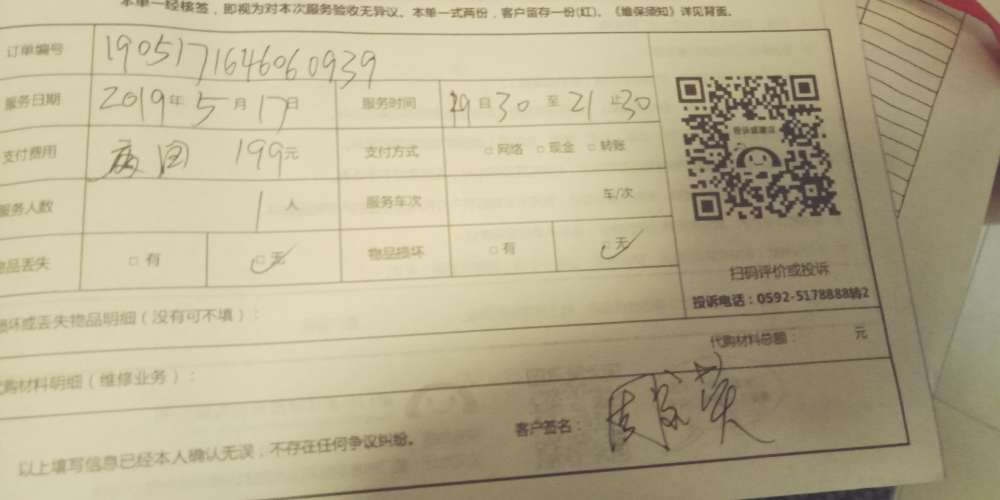 本单一经核签，即视为对本次服务验收无异议。本单一式两份，客户留存一份(红)。《维保须知》详见背面。
订单编号 190517164606093​9
服务日期 2019年5月17日 服务时间 19自30至21止30
支付费用 199元 支付方式 □网络 □现金 □转账
服务人数 1人 服务车次 车/次
物品丢失 □有 □无 物品损坏 □有 □无
投诉或建议
扫码评价或投诉
投诉电话：0592-5178888转2
损坏或丢失物品明细（没有可不填）：
代购材料总额： 元
代购材料明细（维修业务）：
以上填写信息已经本人确认无误，不存在任何争议纠纷。
客户签名：